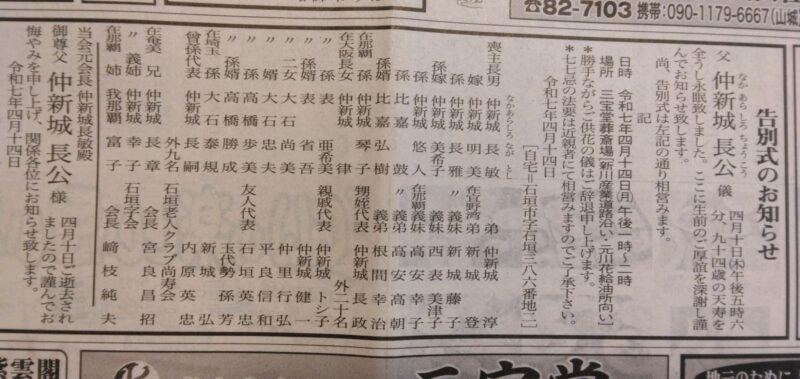 ☎82-7103 携帯:090-1179-6667(山城
告別式のお知らせ
父 仲新城 長公 儀
なか あらしろ ちょうこう
四月十日㈭午後五時六
分、九十四歳の天寿を
全うし永眠致しました。ここに生前のご厚誼を深謝し謹
んでお知らせ致します。
尚、告別式は左記の通り相営みます。
記
日時 令和七年四月十四日(月)午後一時〜二時
場所 三宝堂葬斎場(新川産業道路沿い・元川花給油所向い)
*勝手ながらご供花の儀はご辞退申し上げます。
*七七忌の法要は近親者にて相営みますのでご了承下さい。
令和七年四月十四日
[自宅=石垣市字石垣三八六番地二]
喪主長男 仲新城 長敏
なかあらしろ ながとし
嫁 仲新城 明美
孫 仲新城 長雅
孫嫁 仲新城 美希子
孫 仲新城 悠人
孫 比嘉 鼓
孫婿 比嘉 弘樹
在那覇孫 仲新城 琴子
在大阪長女 仲新城 律
孫 表 亜希美
〃孫婿 表 省吾
〃二女 大石 尚美
〃婿 大石 忠夫
〃孫 高橋 歩美
〃孫婿 高橋 勝成
在埼玉孫 大石 泰規
曾孫代表 仲新城 長嗣
外九名
在奄美兄 仲新城 長章
〃義姉 仲新城 幸子
在那覇姉 我那覇 富子
弟 仲新城 淳
在宜野湾弟 新城 登
〃義妹 新城 藤子
義妹 西表 美津子
在那覇義妹 高安 幸子
〃義弟 高安 高朝
義弟 根間 幸治
甥姪代表 仲新城 長政
外二十名
親戚代表 仲新城 トシ子
仲新城 健一
仲里 行弘
友人代表 平良 信和
石垣 英三
玉代勢 孫芳
新城 弘
内原 英忠
石垣老人クラブ尚寿会
会長 宮良 昌招
石垣字会
会長 﨑枝 純夫
当会元会長 仲新城長敏殿
御尊父 仲新城 長公 様
四月十日ご逝去され
ましたので謹んでお
悔やみを申し上げ、関係各位にお知らせ致します。
令和七年四月十四日
地元のために